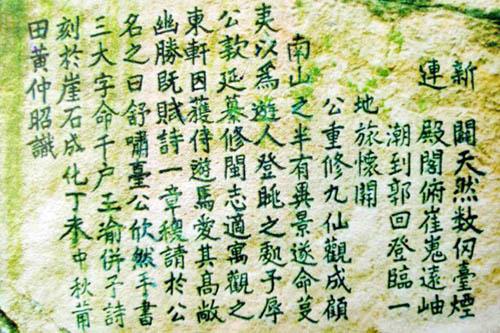 新闢天然数仞臺煙
連殿閣俯崔嵬遠岫
潮到郭回登臨一
地旅懷開
公重修九仙觀成顧
南山之半有異景遂命芟
夷以為遊人登眺之𠩄予辱
公欵延纂修閩志適寓觀之
東軒因獲侍遊焉愛其高敞
幽勝既賦詩一章稷請於公
名之曰舒嘯臺公欣然手書
三大字命千户王瑜併予詩
刻於崖石成化丁未中秋莆
田黄仲昭識